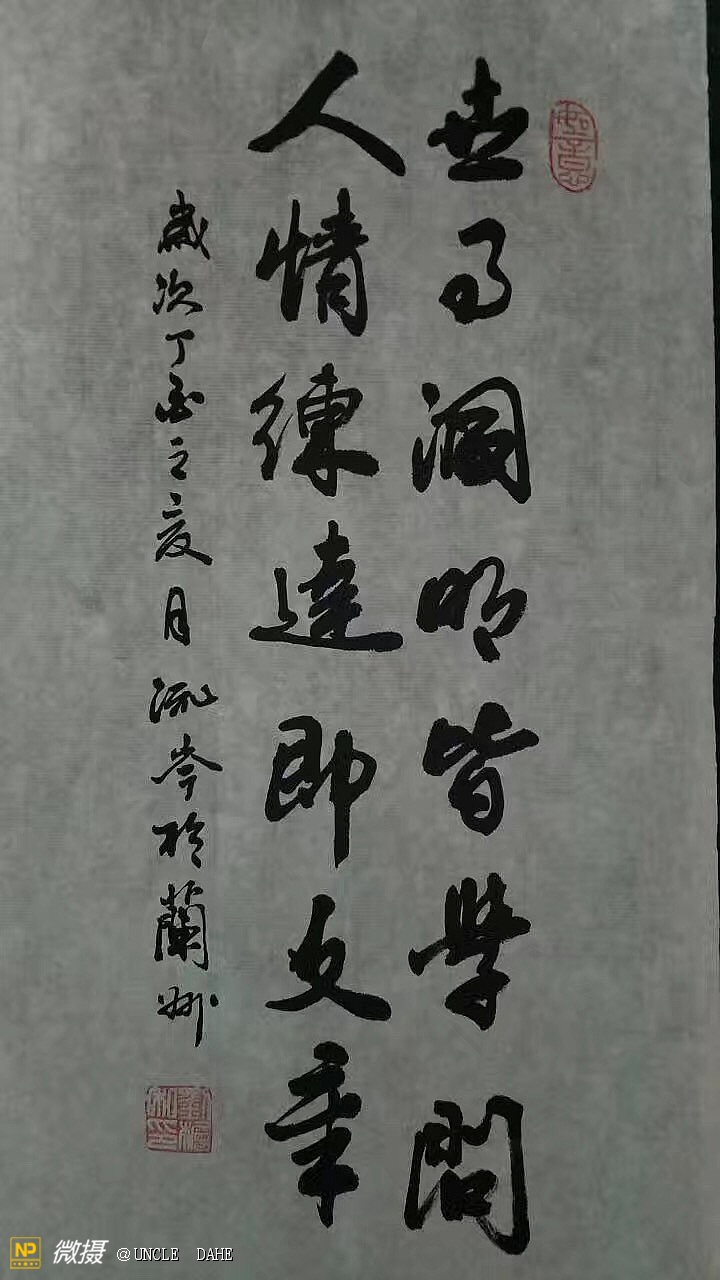 世事洞明皆學問
人情練達即文章
歲次丁酉之夏月流岑於蘭州
如意
NP 微摄 @UNCLE DAHE